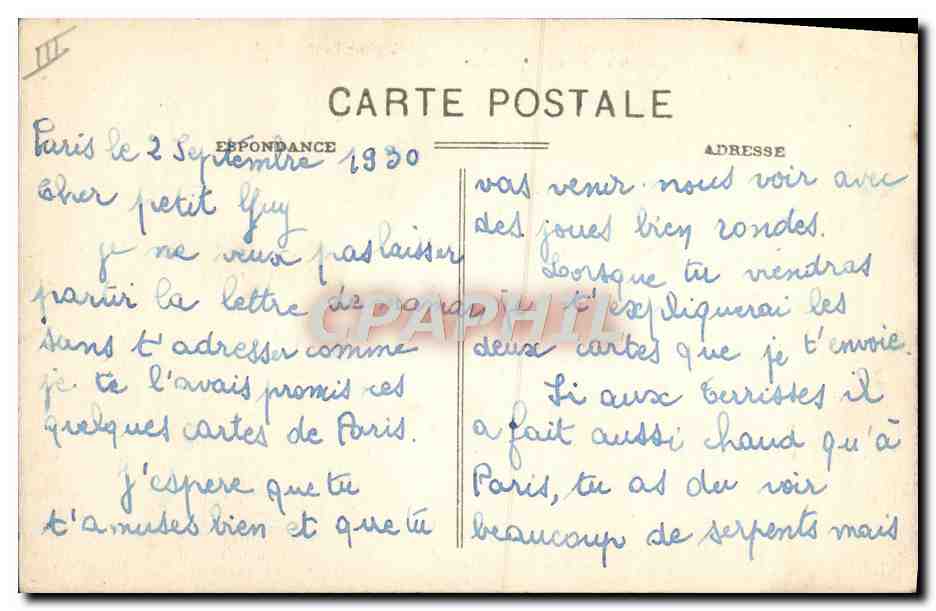 III
CARTE POSTALE
ESPONDANCE
ADRESSE
Paris le 2 Septembre 1930
Cher petit Guy
je ne veux pas laisser
partir la lettre de maman
sans t'adresser comme
je te l'avais promis ces
quelques cartes de Paris.
J'espere que tu
t'amuses bien et que tu
vas venir nous voir avec
des joues bien rondes.
Lorsque tu viendras
je t'expliquerai les
deux cartes que je t'envoie.
Si aux Terrisses il
a fait aussi chaud qu'à
Paris, tu as du voir
beaucoup de serpents mais
CPAPHIL